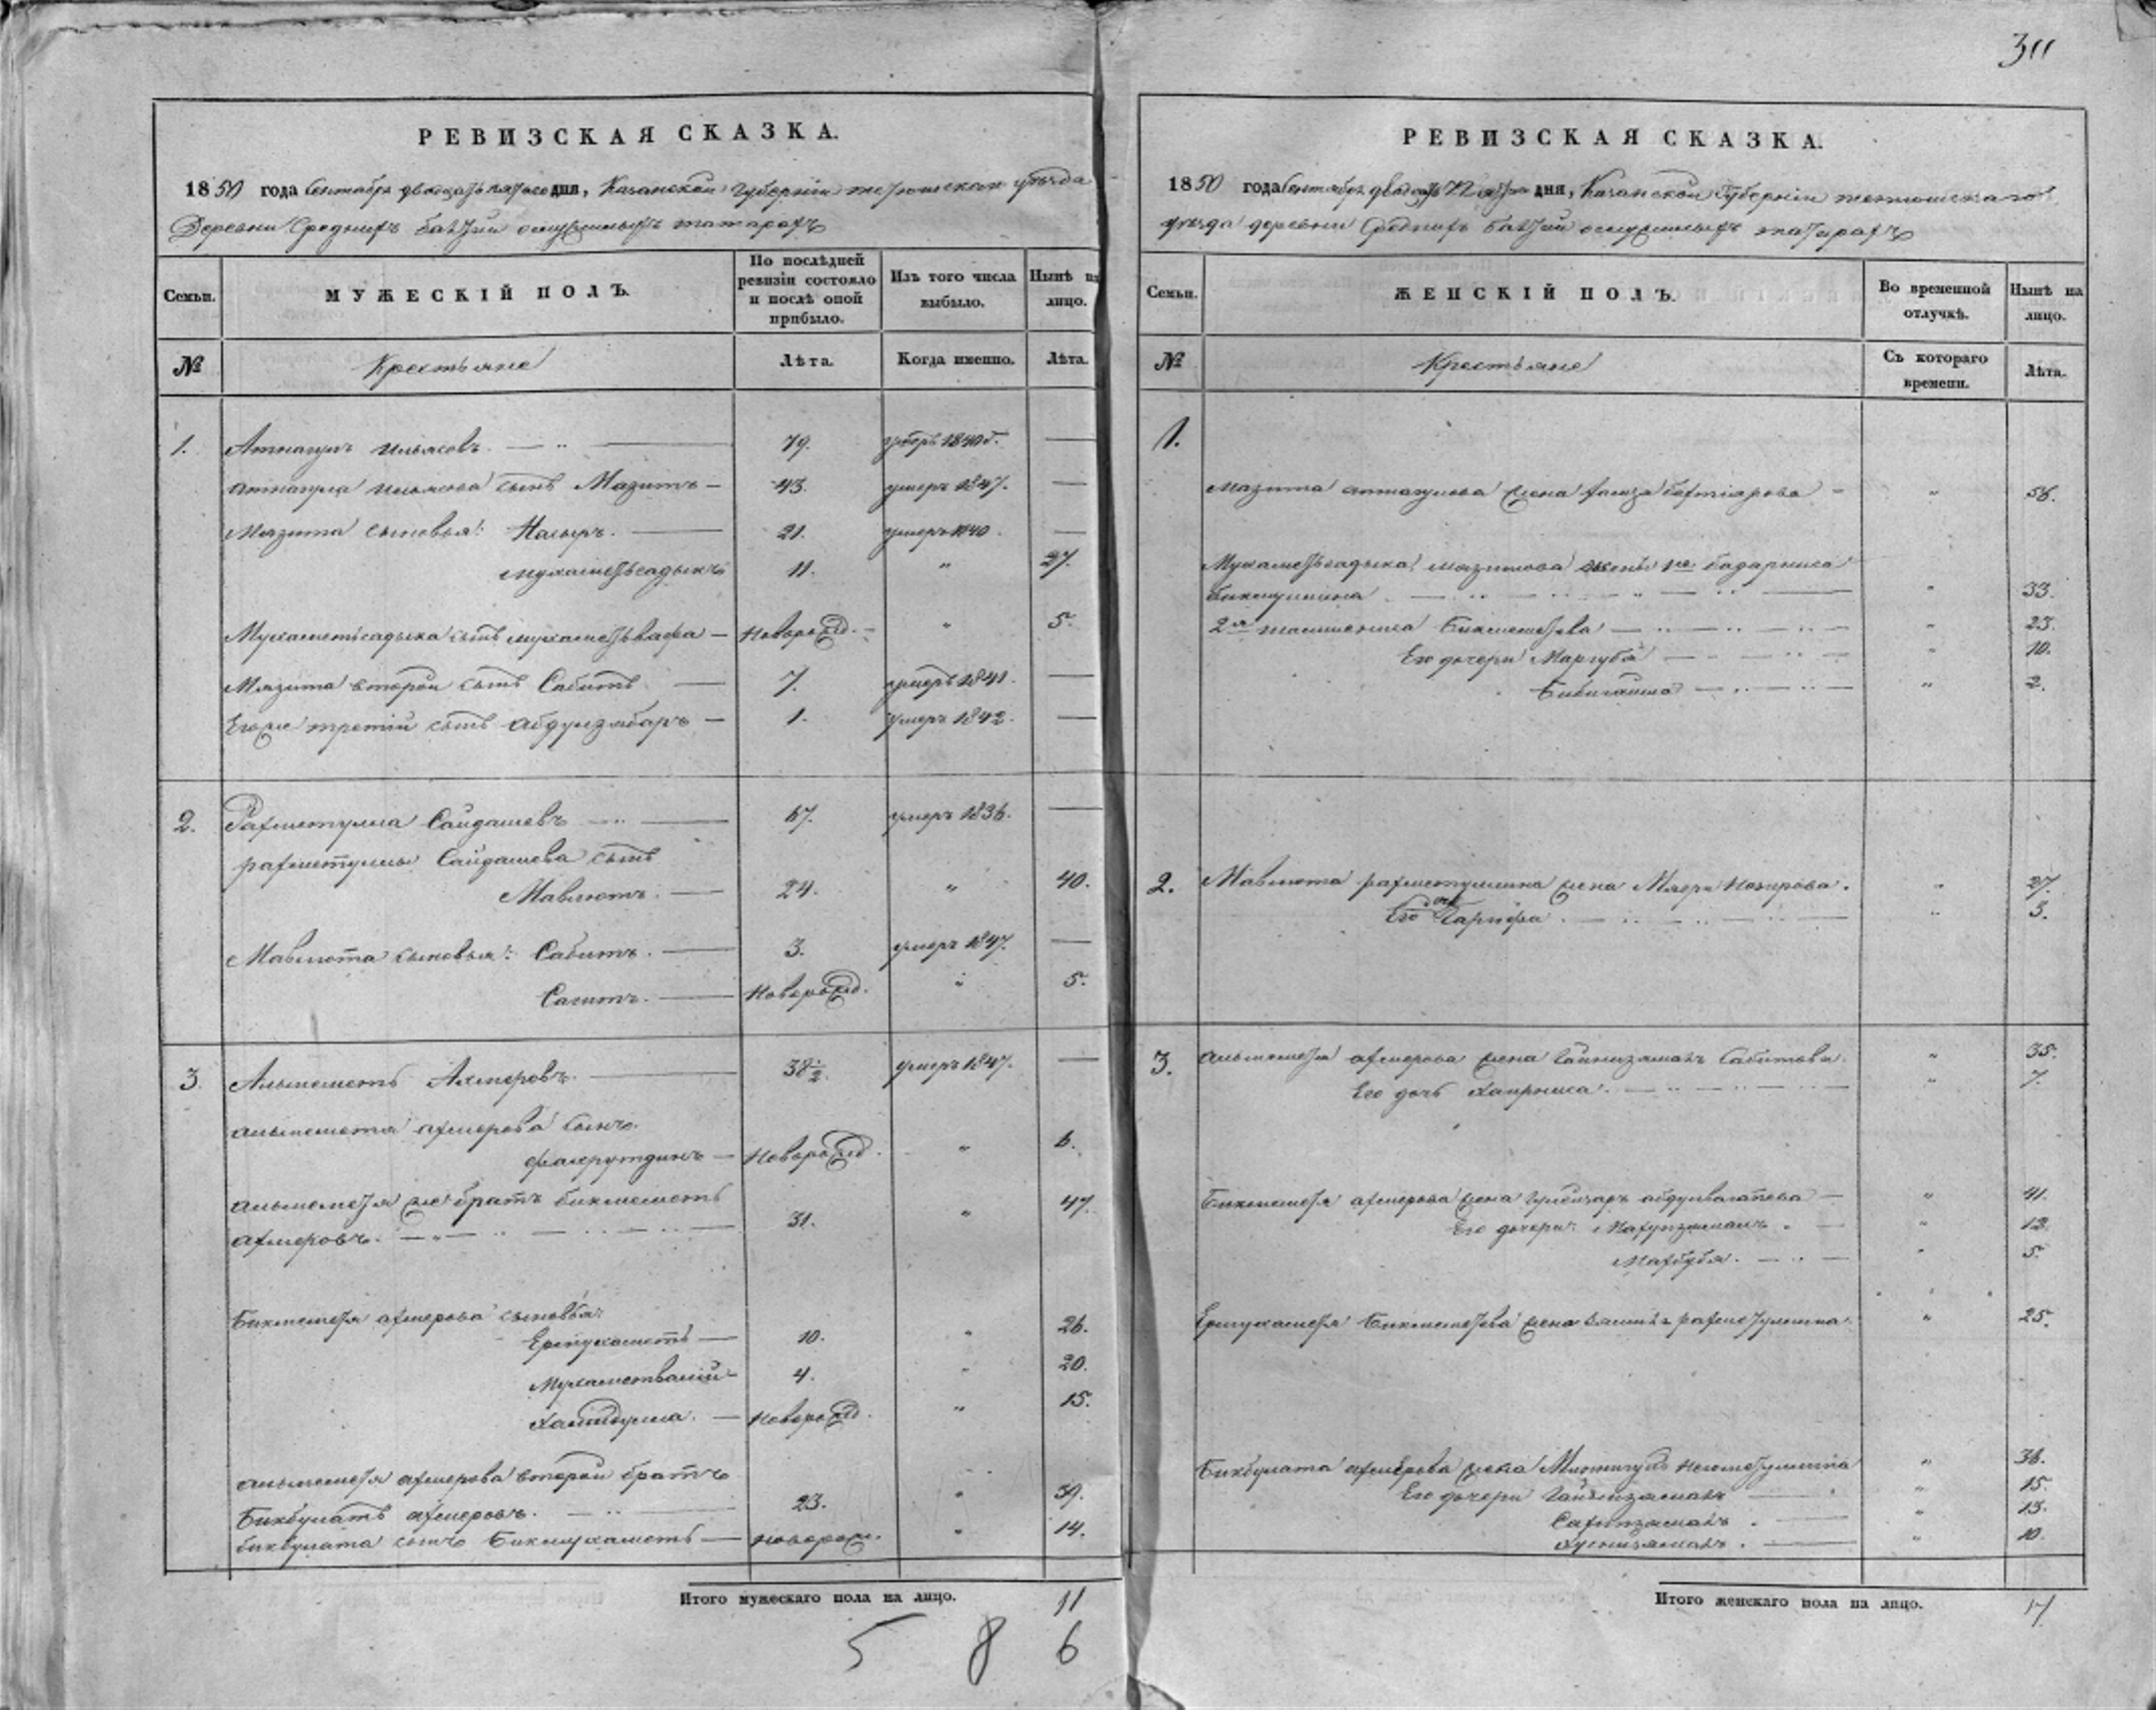 311
РЕВИЗСКАЯ СКАЗКА.
1850 года Сентября двадцать пятого дня, Казанской Губернии тетюшскаго уѣзда
Деревни Среднихъ Балтай о служилыхъ татарахъ
Семьи.
МУЖЕСКІЙ ПОЛЪ.
По послѣдней ревизіи состояло и послѣ оной прибыло.
Изъ того числа выбыло.
Нынѣ на лицо.
№
Крестьяне
Лѣта.
Когда именно.
Лѣта.
1. Атнагулъ Ильясовъ. 79. умеръ 1840 —
Атнагула Ильясова сынъ Мазитъ 43. умеръ 1847. —
Мазита сыновья: Насыръ. 21. умеръ 1840. —
Мухаметьсадыкъ 11. " 27.
Мухаметьсадыка сынъ Мухаметьвафа Новорожд. " 5.
Мазита второй сынъ Сабитъ 7. умеръ 1841. —
Егоже третій сынъ Абдулзябаръ 1. умеръ 1842. —
2. Рахметулла Сайдашевъ 67. умеръ 1836. —
Рахметуллы Сайдашева сынъ
Мавлютъ. 24. " 40.
Мавлюта сыновья: Сабитъ. 3. умеръ 1847. —
Сагитъ. Новорожд. " 5.
3. Альмеметь Ахмеровъ. 38½. умеръ 1847. —
Альмеметя Ахмерова сынъ.
Фахрутдинъ Новорожд. " 6.
Альмеметя же братъ Бикмеметь
Ахмеровъ. 31. " 47.
Бикмеметя Ахмерова сыновья:
Ермухаметь 10. " 26.
Мухаметвалій 4. " 20.
Хабибулла. Новорожд. " 15.
Альмеметя Ахмерова второй братъ
Бикбулатъ Ахмеровъ. 23. " 39.
Бикбулата сынъ Бикмухаметь Новорож. " 14.
Итого мужескаго пола на лицо. 11
5 8 6
РЕВИЗСКАЯ СКАЗКА.
1850 года Сентября двадцать пятаго дня, Казанской Губерніи тетюшскаго
уѣзда деревни Среднихъ Балтай о служилыхъ татарахъ
Семьи.
ЖЕНСКІЙ ПОЛЪ.
Во временной отлучкѣ.
Нынѣ на лицо.
№
Крестьяне
Съ котораго времени.
Лѣта.
1.
Мазита Атнагулова жена Бахтіярова " 56.
Мухаметьсадыка Мазитова жены 1я Бадарниса
Бикмуллина " 33.
2я Бикмеметева " 23.
Его дочери Маргуба " 10.
Бибигайша " 2.
2. Мавлюта Рахметуллина жена Назирова. " 27.
Его дочь Гарифа. " 3.
3. Альмеметя Ахмерова жена Гайнизямалъ Сабитова. " 35.
Его дочь Хаирниса. " 7.
Бикмеметя Ахмерова жена Абдулвагапова " 41.
Его дочери: " 12.
Махбубя. " 5.
Ермухаметя Бикмеметева жена Рахметуллина. " 25.
Бикбулата Ахмерова жена " 36.
Его дочери Гайнизямалъ " 15.
Сафизямалъ. " 13.
Хуснизямалъ. " 10.
Итого женскаго пола на лицо. 17